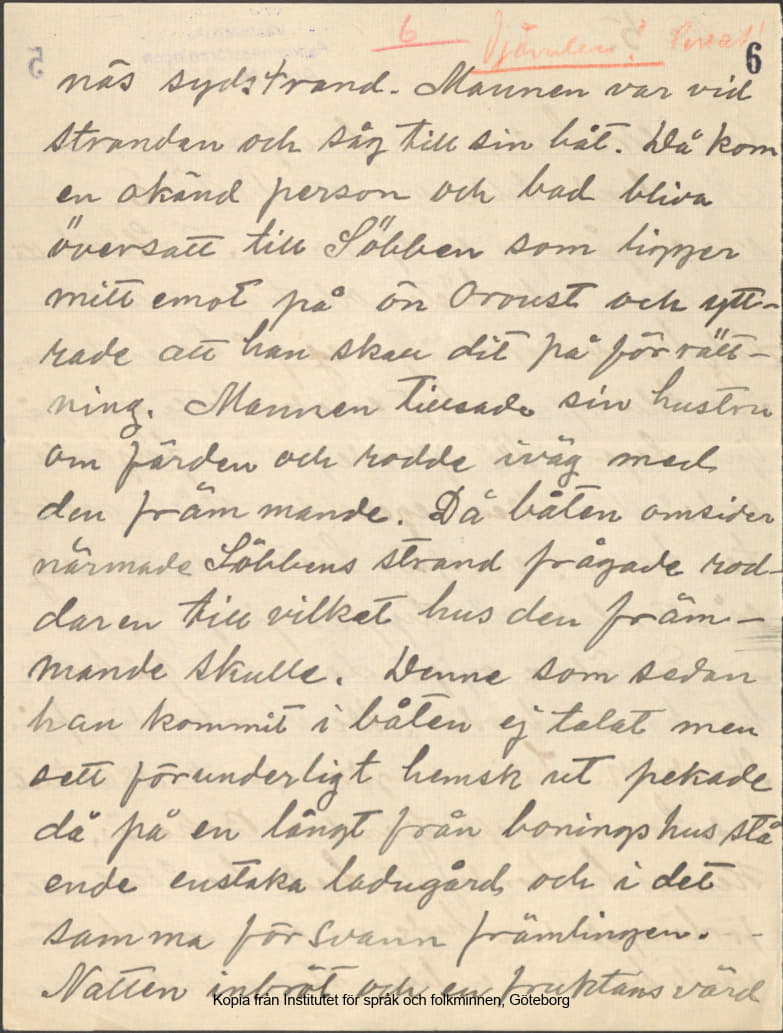 6
6
5
näs sydstrand. Mannen var vid
stranden och såg till sin båt. Då kom
en okänd person och bad bliva
översatt till Slöbben som ligger
mitt emot på ön Oroust och ytt-
rade att han skall dit på förrätt-
ning. Mannen tillsade sin hustru
om färden och rodde iväg med
den främmande. Då båten omsider
närmade Slöbbens strand frågade rod-
daren till vilket hus den främ-
mande skulle. Denne som sedan
han kommit i båten ej talat men
sett förunderligt hemsk ut pekade
då på en långt från boningshus stå
ende enstaka ladugård och i det
samma försvann främlingen. -
Natten inbröt och en fruktansvärd
Kopia från Institutet för språk och folkminnen, Göteborg